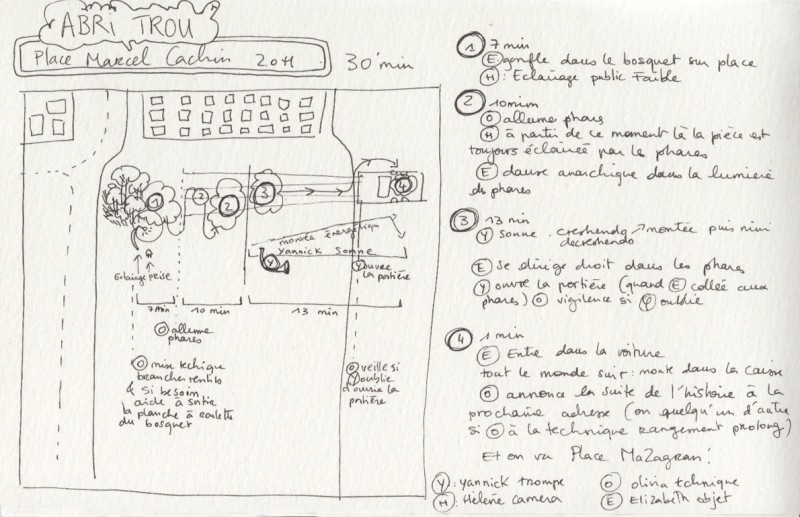 ABRI TROU
Place Marcel Cachin 20H
30'min
1
2
2
3
4
montée énergétique
Yannick Sonne
Y
Y ouvre
la portière
Eclairage prise
7min
10 min
13 min
O allume
phares
O mise tchique
brancher
& Si besoin
aide à sortir
la planche à roulette
du bosquet
O veille si
Y oublie
d'ouvrir la
portière
1 7 min
E gonfle dans le bosquet sur place
H : Eclairage public Faible
2 10 min
O allume phares
H à partir de ce moment là la pièce est
toujours éclairée par les phares
E danse anarchique dans la lumière
des phares
3 13 min
Y Sonne . creshendo montée puis mini
decreshendo
E se dirige droit dans les phares
Y ouvre la portière (quand E collée aux
phares) O vigilence si Y oublie
4 1 min
E Entre dans la voiture
tout le monde suit : monte dans la caisse
O annonce la suite de l'histoire à la
prochaine adresse (ou quelqu'un d'autre
si O à la technique rangement prolong)
Et on va Place MaZagran!
Y : yannick trompe
O olivia tchnique
H : Hélène camera
E Elizabeth objet